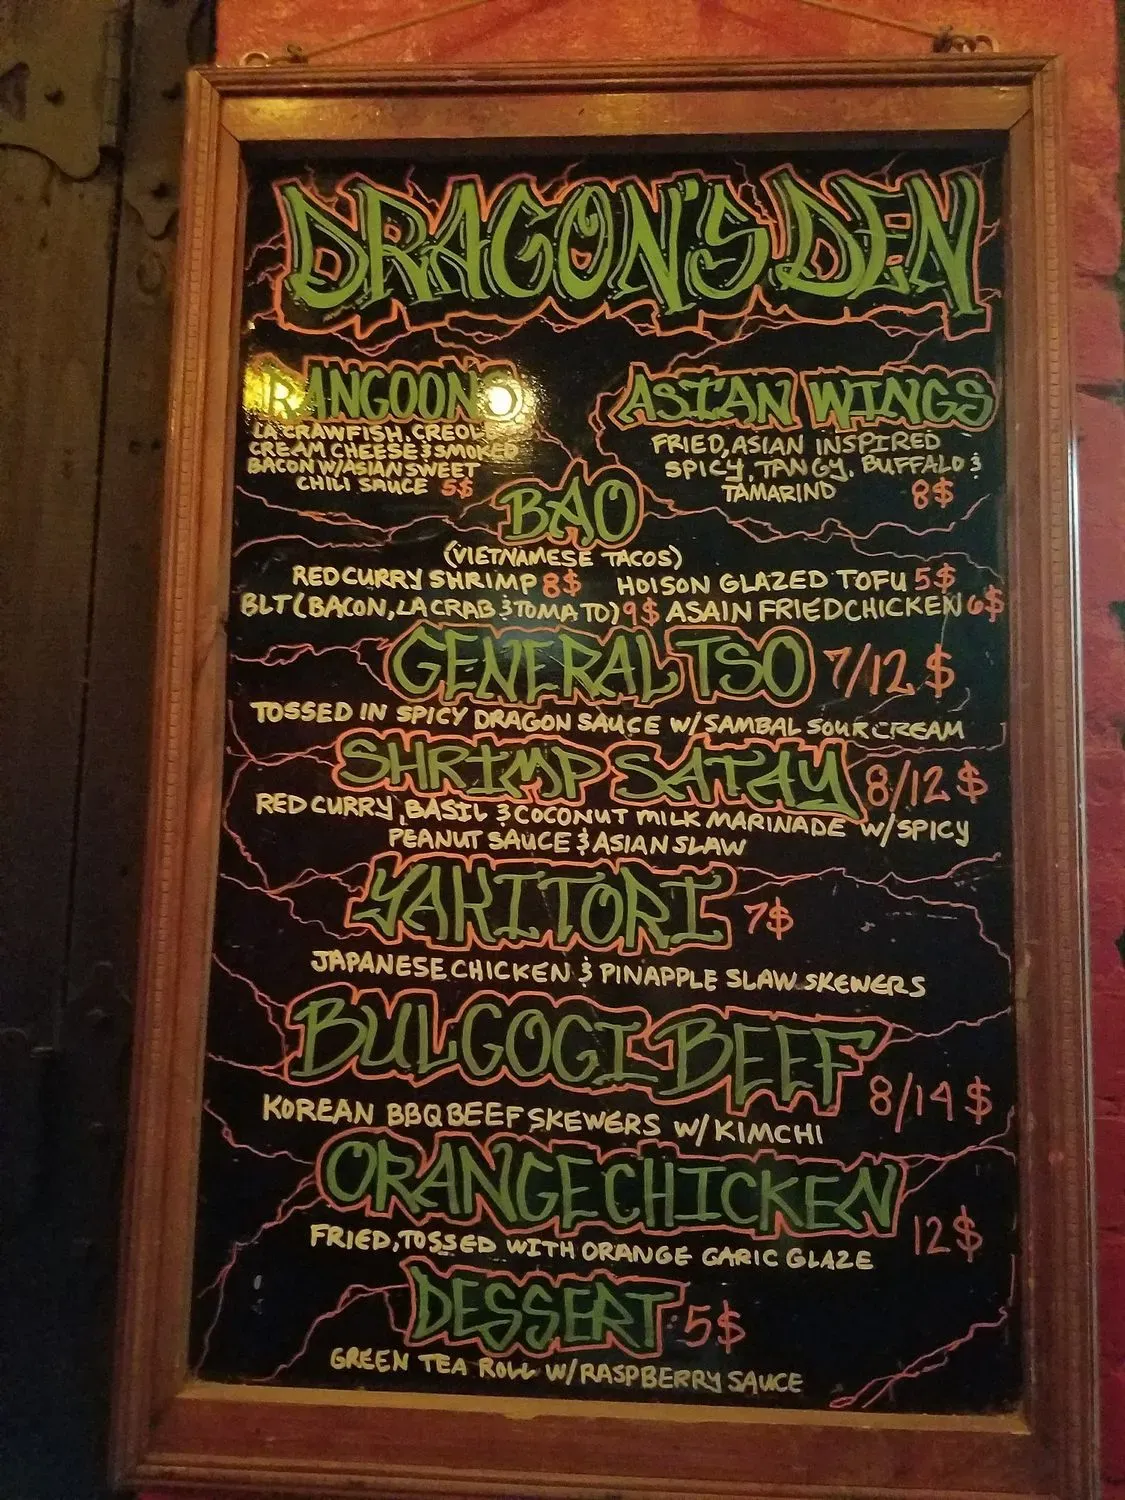 DRAGON'S DEN
RANGOONS
LA CRAWFISH, CREOLE
CREAM CHEESE & SMOKED
BACON W/ASIAN SWEET
CHILI SAUCE 5$
ASIAN WINGS
FRIED, ASIAN INSPIRED
SPICY, TANGY, BUFFALO &
TAMARIND 8$
BAO
(VIETNAMESE TACOS)
RED CURRY SHRIMP 8$ HOISON GLAZED TOFU 5$
BLT (BACON, LA CRAB & TOMATO) 9$ ASAIN FRIED CHICKEN 6$
GENERAL TSO 7/12 $
TOSSED IN SPICY DRAGON SAUCE W/ SAMBAL SOUR CREAM
SHRIMP SATAY 8/12 $
RED CURRY, BASIL & COCONUT MILK MARINADE W/SPICY
PEANUT SAUCE & ASIAN SLAW
YAKITORI 7$
JAPANESE CHICKEN & PINAPPLE SLAW SKEWERS
BULGOGI BEEF 8/14 $
KOREAN BBQ BEEF SKEWERS W/ KIMCHI
ORANGE CHICKEN 12 $
FRIED, TOSSED WITH ORANGE GARIC GLAZE
DESSERT 5$
GREEN TEA ROLL W/RASPBERRY SAUCE